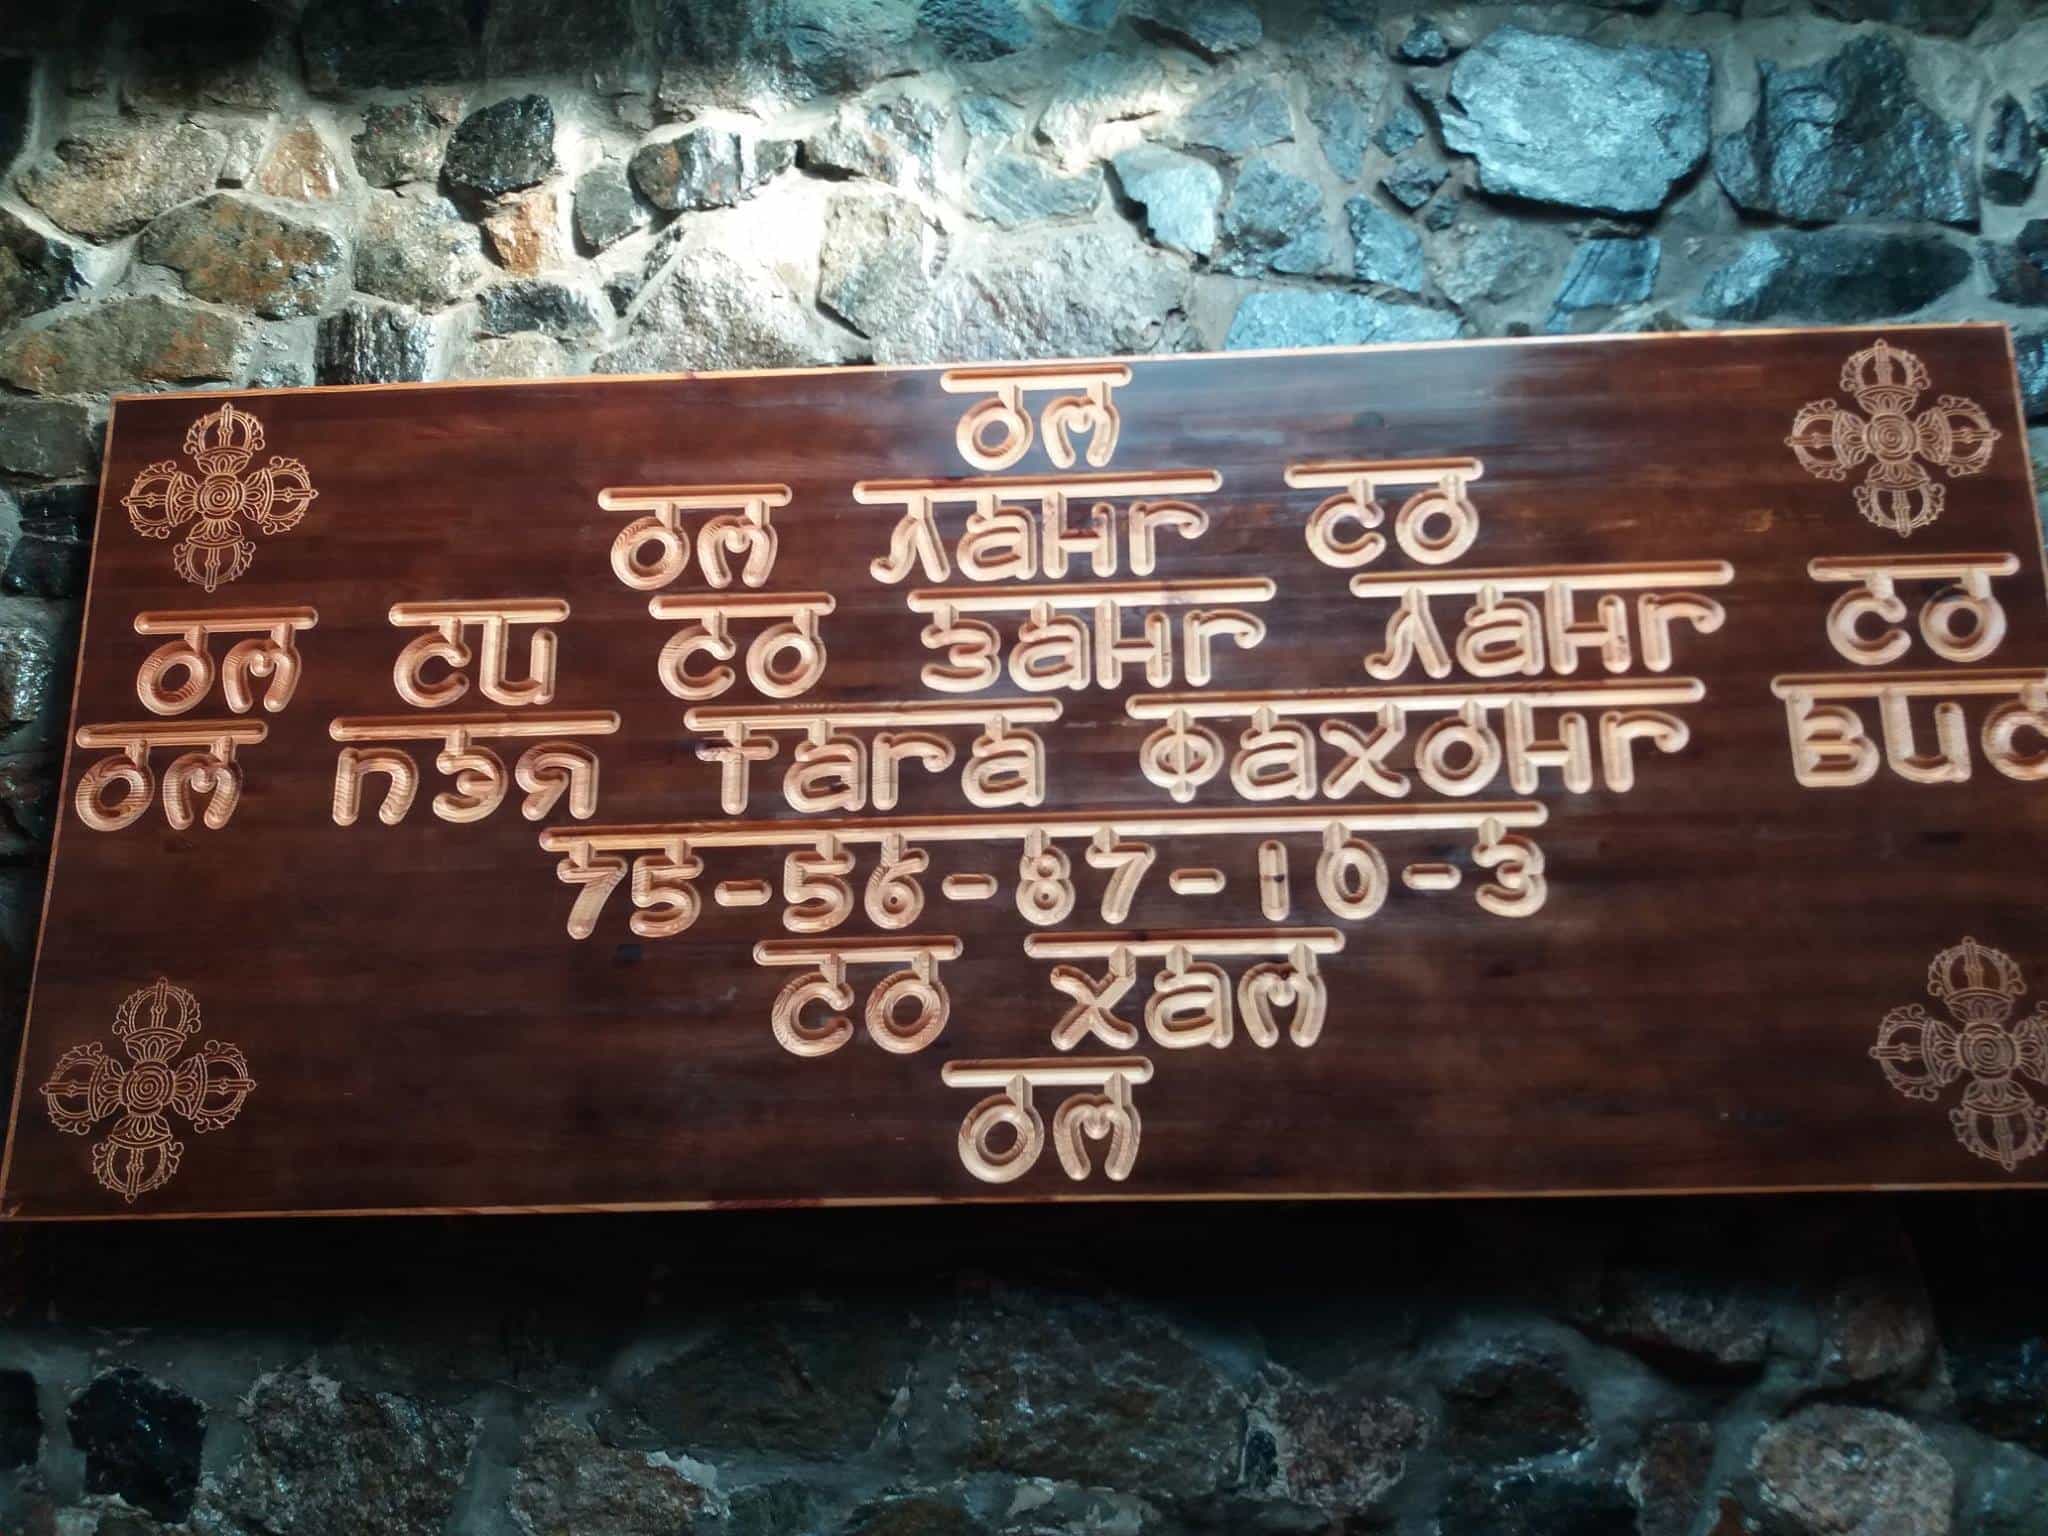 ом
ом ланг со
ом си со занг ланг со
ом пэя тага фахонг
75-56-87-10-3
со хам
ом